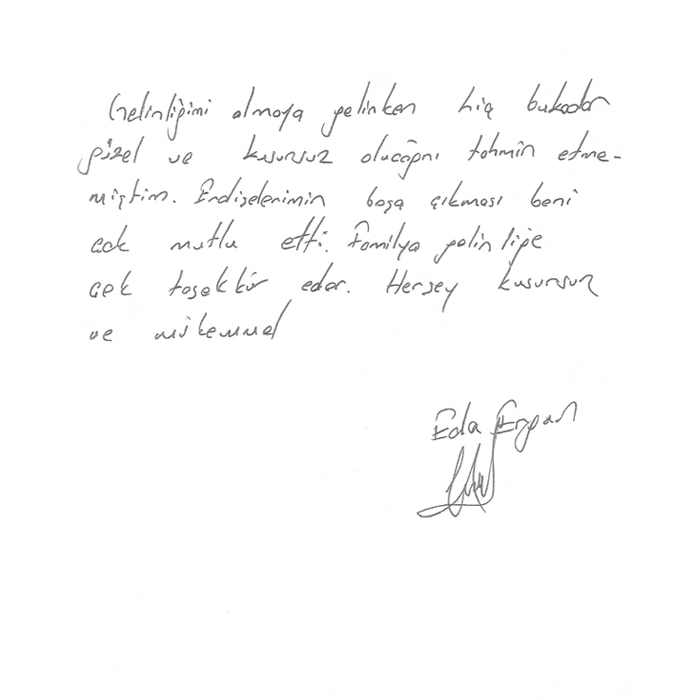 Gelinliğimi almaya gelirken hiç bukadar
güzel ve kusursuz olucağını tahmin etme-
miştim. Endişelerimin boşa çıkması beni
çok mutlu etti. Familya gelinliğe
çok teşekkür eder. Herşey kusursuz
ve mükemmel
Eda